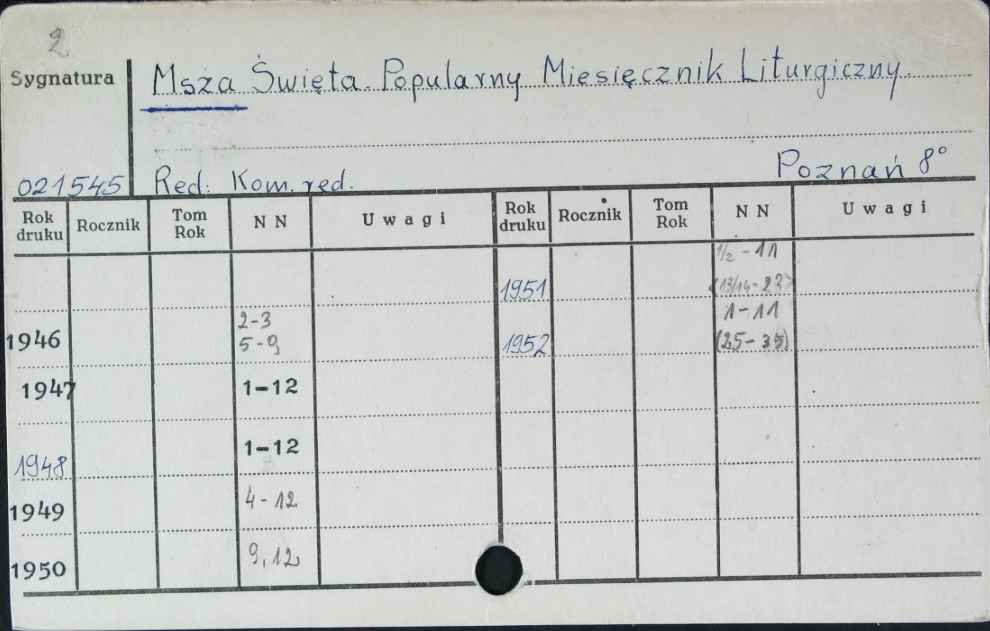 2
Sygnatura
Msza Święta. Popularny Miesięcznik Liturgiczny.
021545 Red. Kom. red. Poznań 8°
Rok druku Rocznik Tom Rok N N Uwagi Rok druku Rocznik Tom Rok N N Uwagi
1951 1/2 - 11
(13/14 - 23)
1946 2-3
5-9
1952 1-11
(25-35)
1947 1-12
1948 1-12
1949 4-12
1950 9, 12